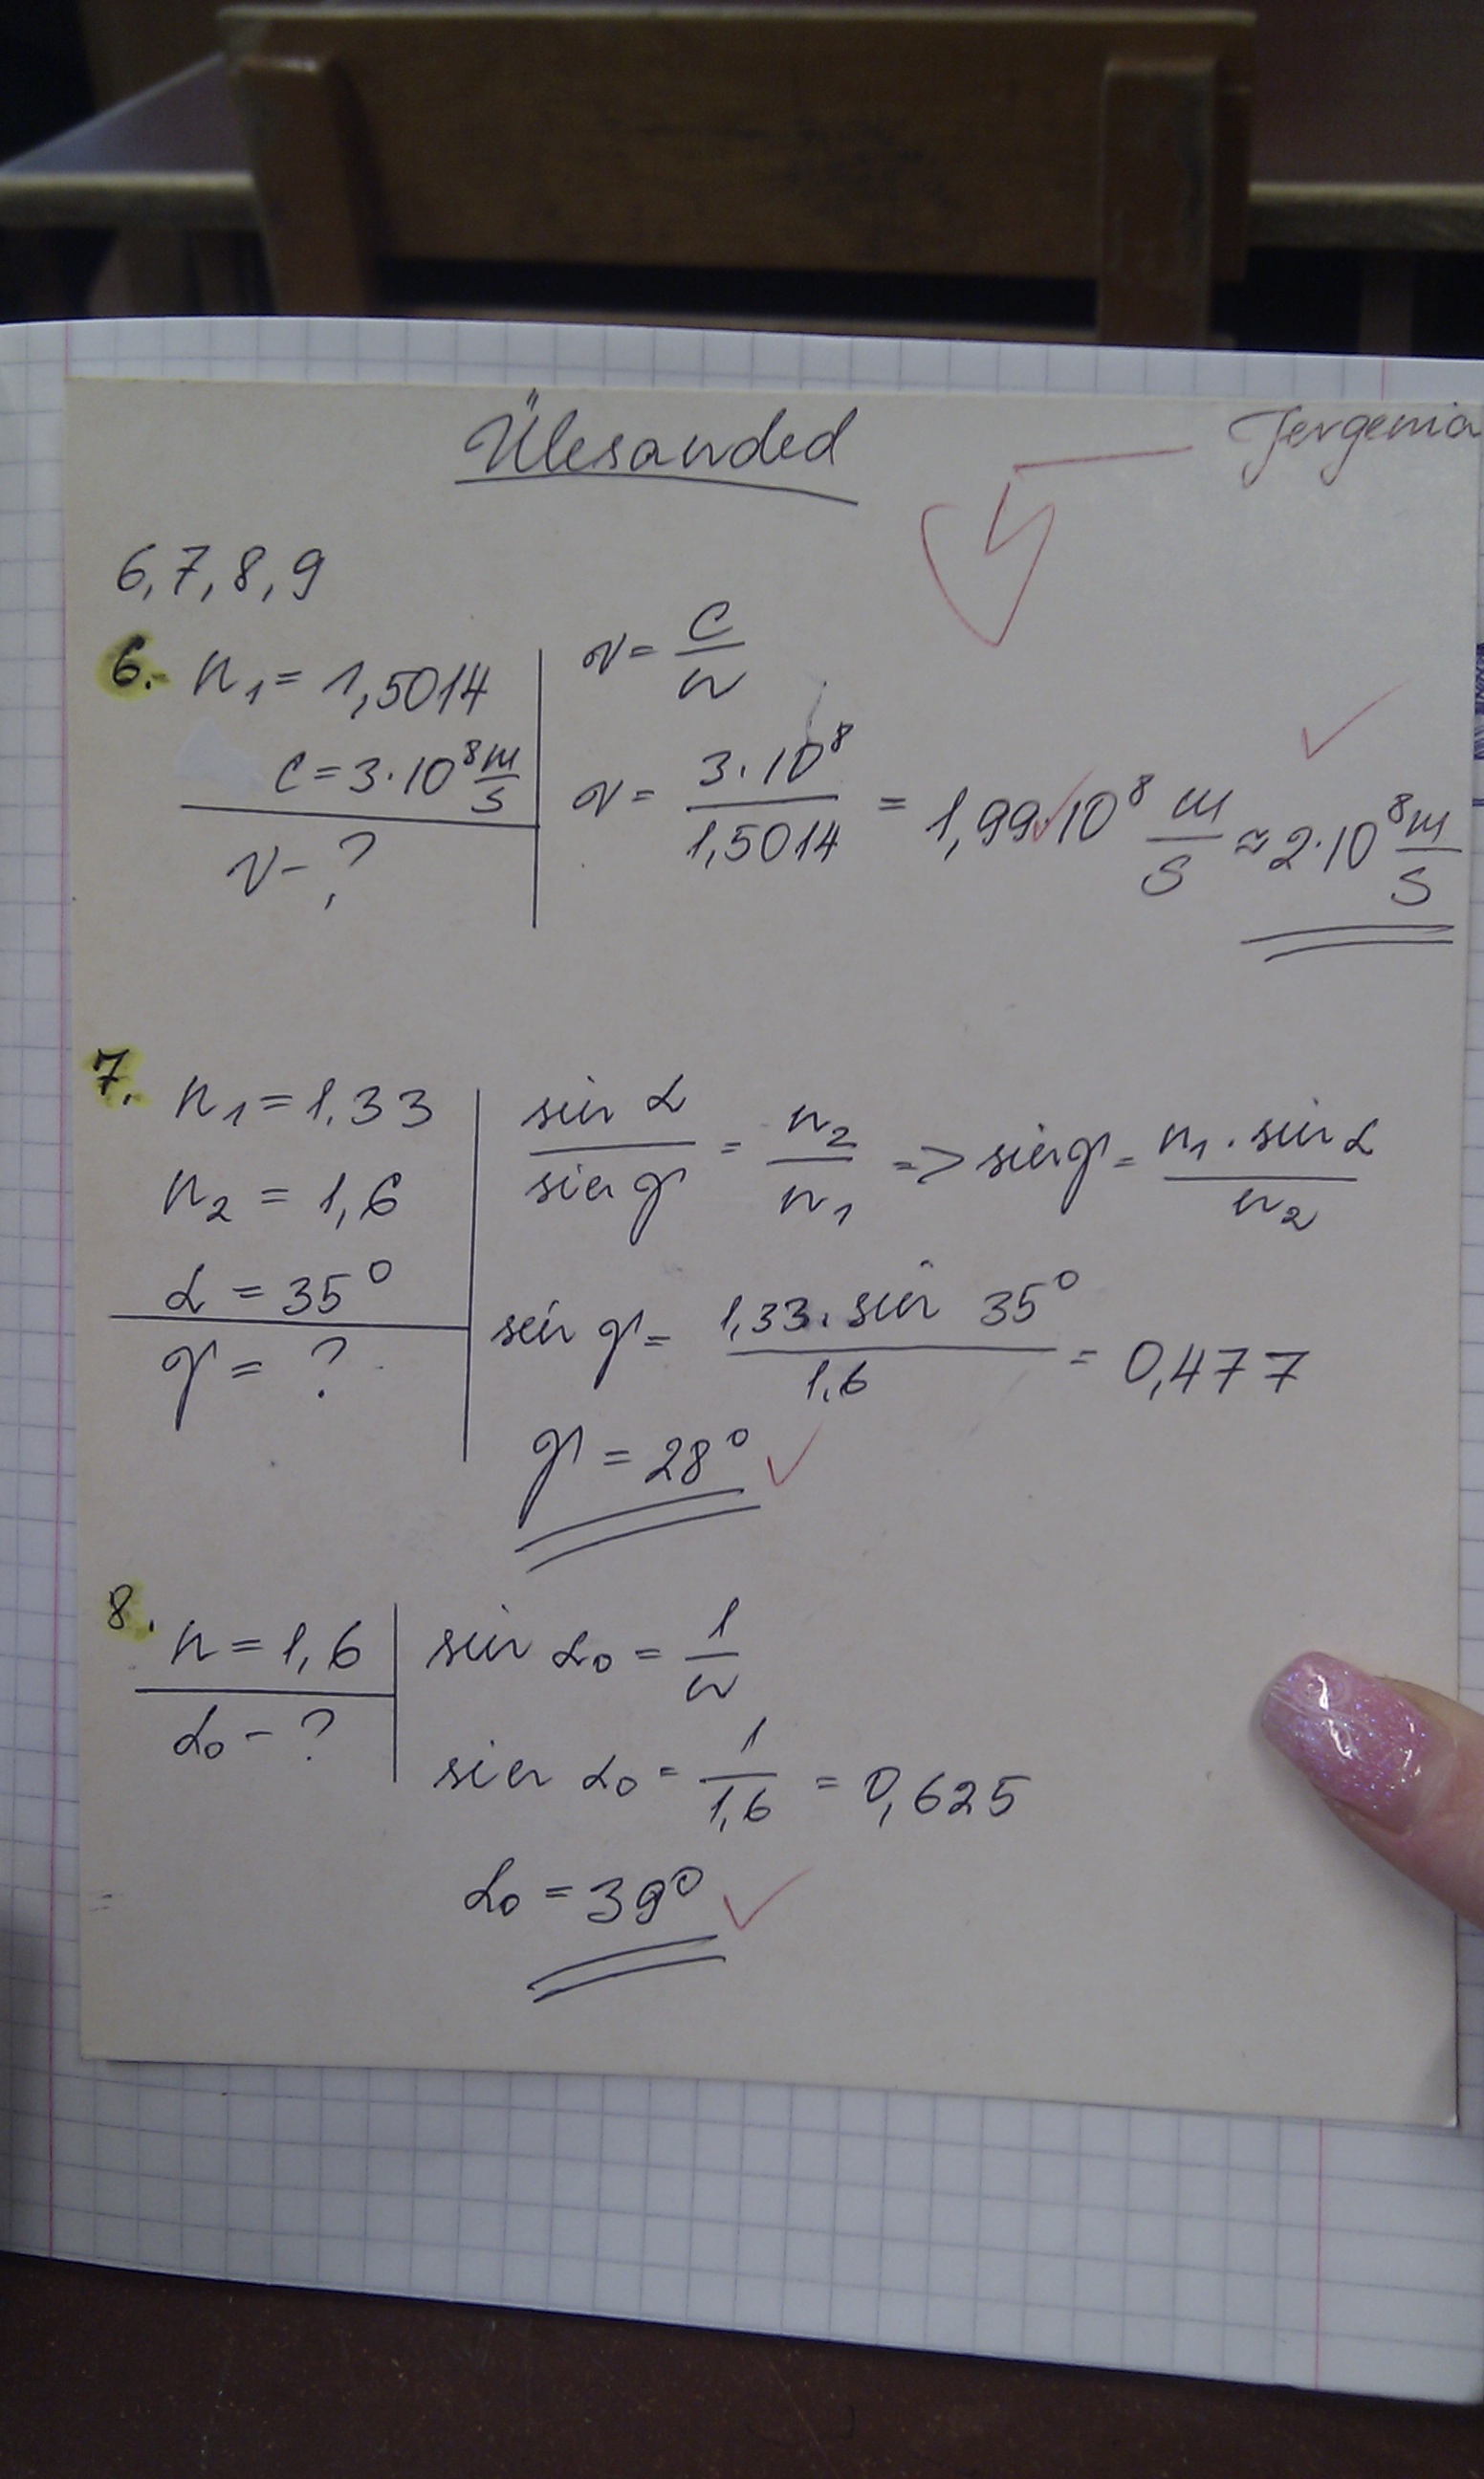 Ülesanded Jevgenia
6,7,8,9
6. n₁ = 1,5014
c = 3·10⁸ m/s
v - ?
v = c/n
v = 3·10⁸/1,5014 = 1,99·10⁸ m/s ≈ 2·10⁸ m/s
7. n₁ = 1.33
n₂ = 1,6
α = 35°
γ = ?
sin α/sin γ = n₂/n₁ => sin γ = n₁ · sin α/n₂
sin γ = 1,33 · sin 35°/1,6 = 0,477
γ = 28°
8. n = 1,6
α₀ - ?
sin α₀ = 1/n
sin α₀ = 1/1,6 = 0,625
α₀ = 39°